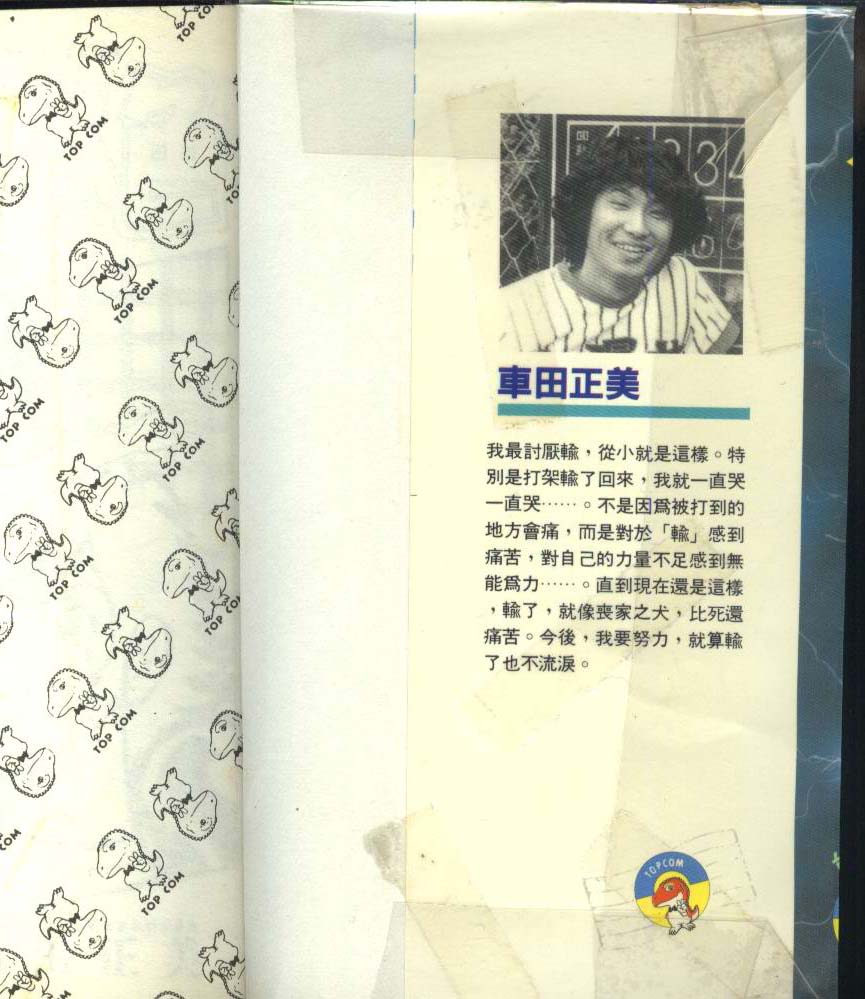 TOP COM
TOP COM
TOP COM
TOP COM
TOP COM
TOP COM
TOP COM
TOP COM
TOP COM
TOP COM
COM
TOP COM
1 2 3 4
車田正美
我最討厭輸,從小就是這樣。特
別是打架輸了回來,我就一直哭
一直哭……。不是因爲被打到的
地方會痛,而是對於「輸」感到
痛苦,對自己的力量不足感到無
能爲力……。直到現在還是這樣
,輸了,就像喪家之犬,比死還
痛苦。今後,我要努力,就算輸
了也不流淚。
TOPCOM